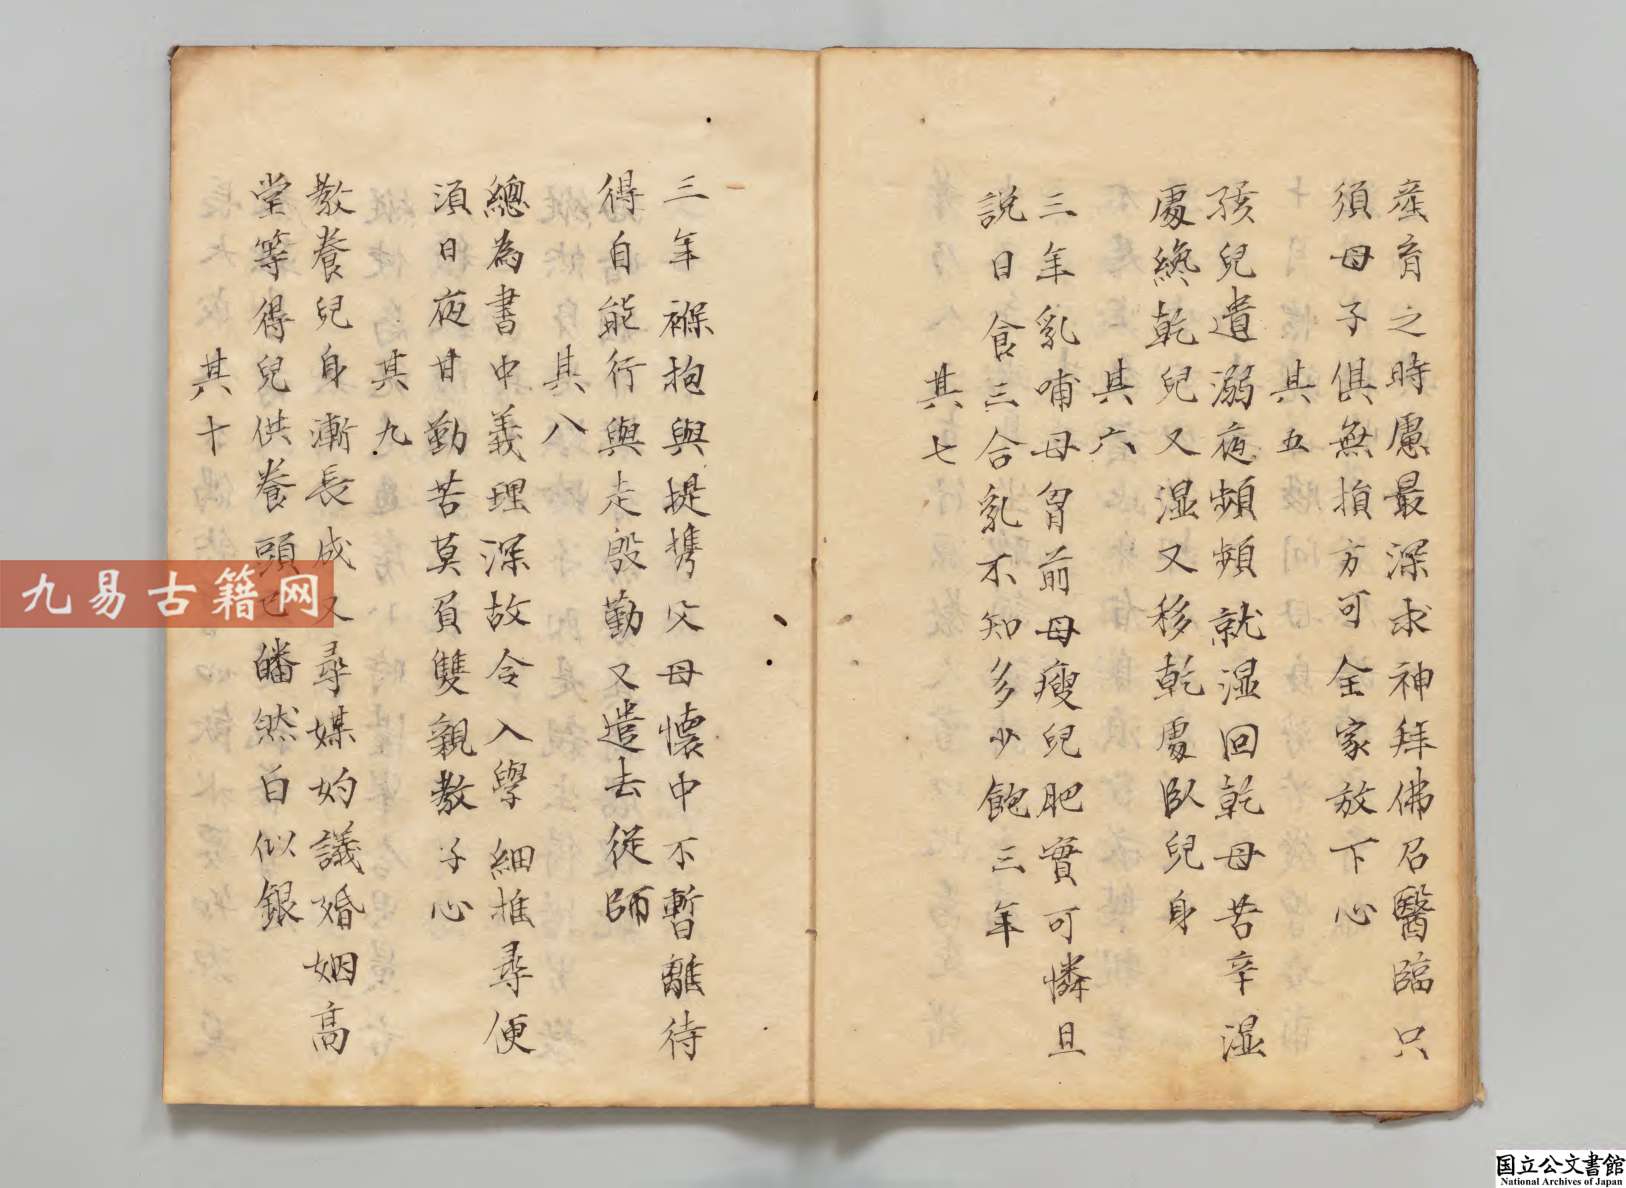 產育之時慮最深求神拜佛召醫臨只
須母子俱無損方可全家放下心
其五
孩兒遺溺夜頻頻就湿回乾母苦辛湿
處纔乾兒又湿又移乾處臥兒身
其六
三年乳哺母胷前母瘦兒肥實可憐且
說日食三合乳不知多少飽三年
其七
三年褓抱與提携父母懷中不暫離待
得自能行與走殷勤又遣去從師
其八
總為書中義理深故令入學細推尋便
須日夜甘勤苦莫負雙親教子心
其九
教養兒身漸長成又尋媒妁議婚姻高
堂等得兒供養頭已皤然白似銀
其十
九易古籍网
国立公文書館
National Archives of Japan